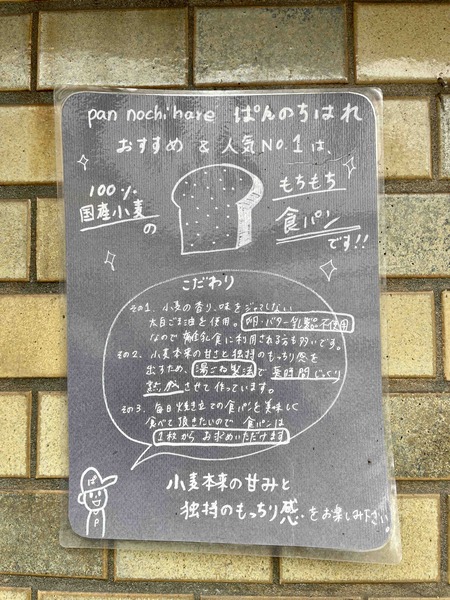 pan nochihare ぱんのちはれ
おすすめ & 人気No.1は、
100%
国産小麦の
もちもち
食パン
です!!
こだわり
その1. 小麦の香り、味をジャマしない
太白ごま油を使用。卵・バター・乳製品不使用
なので離乳食に利用される方も多いです。
その2. 小麦本来の甘さと独特のもっちり感を
出すため、湯ごね製法で長時間じっくり
熟成させて作っています。
その3. 毎日焼き立ての食パンを美味しく
食べて頂きたいので 食パンは
1枚からお求めいただけます
ぱ
P
小麦本来の甘みと
独特のもっちり感をお楽しみ下さい。